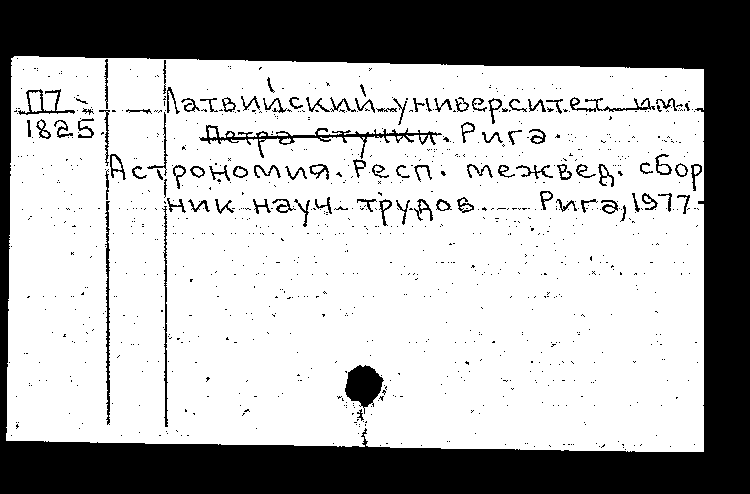 П7
1825
Латвийский университет им.
Петра Стучки. Рига.
Астрономия. Респ. межвед. сбор
ник науч. трудов. Рига, 1977-